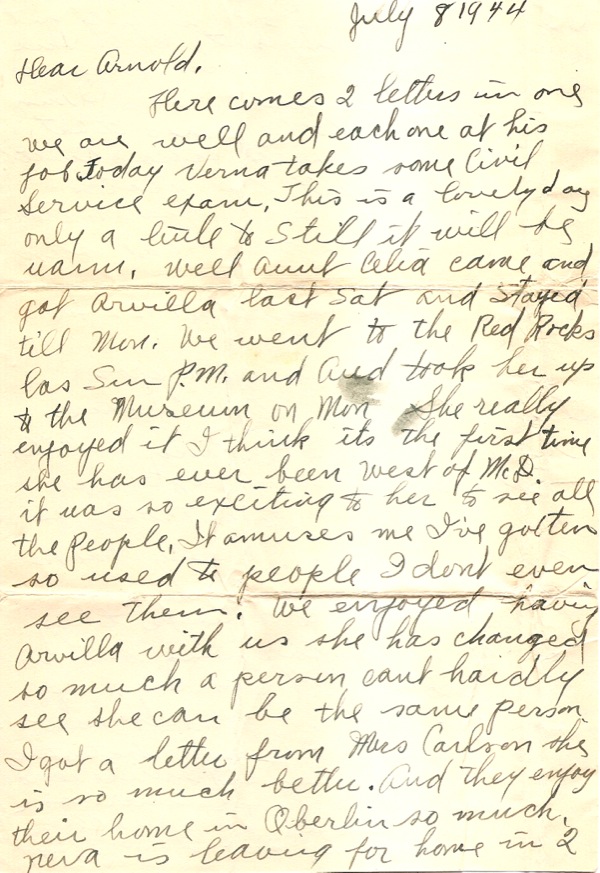 July 8 1944
Dear Arnold.
Here comes 2 letters in one
we are well and each one at his
job. Today Verna takes some Civil
Service exam. This is a lovely day
only a little to Still it will be
warm. Well Aunt Celia came and
got Arvilla last Sat and Stayed
till Mon. We went to the Red Rocks
las Sun P.M. and Aud took her up
to the Museum on Mon She really
enjoyed it I think its the first time
she has ever been West of McD.
it was so exciting to her to see all
the people, It amuses me I've gotten
so used to people I dont even
see them. We enjoyed having
Arvilla with us she has changed
so much a person cant hardly
see she can be the same person
I got a letter from Mrs Carlson she
is so much better. And they enjoy
their home in Oberlin so much.
Neva is leaving for home in 2